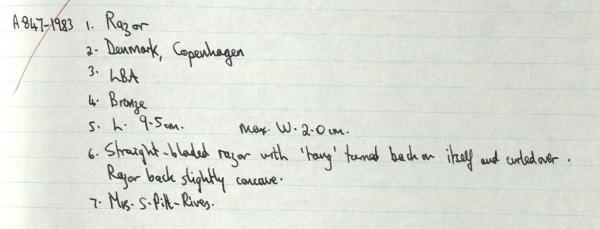 A847-1983 1. Razor
2. Denmark, Copenhagen
3. LBA
4. Bronze
5. L. 9.5cm. Max. W. 2.0cm.
6. Straight-bladed razor with 'tang' turned back on itself and curled over.
Razor back slightly concave.
7. Mrs. S. Pitt-Rivers.